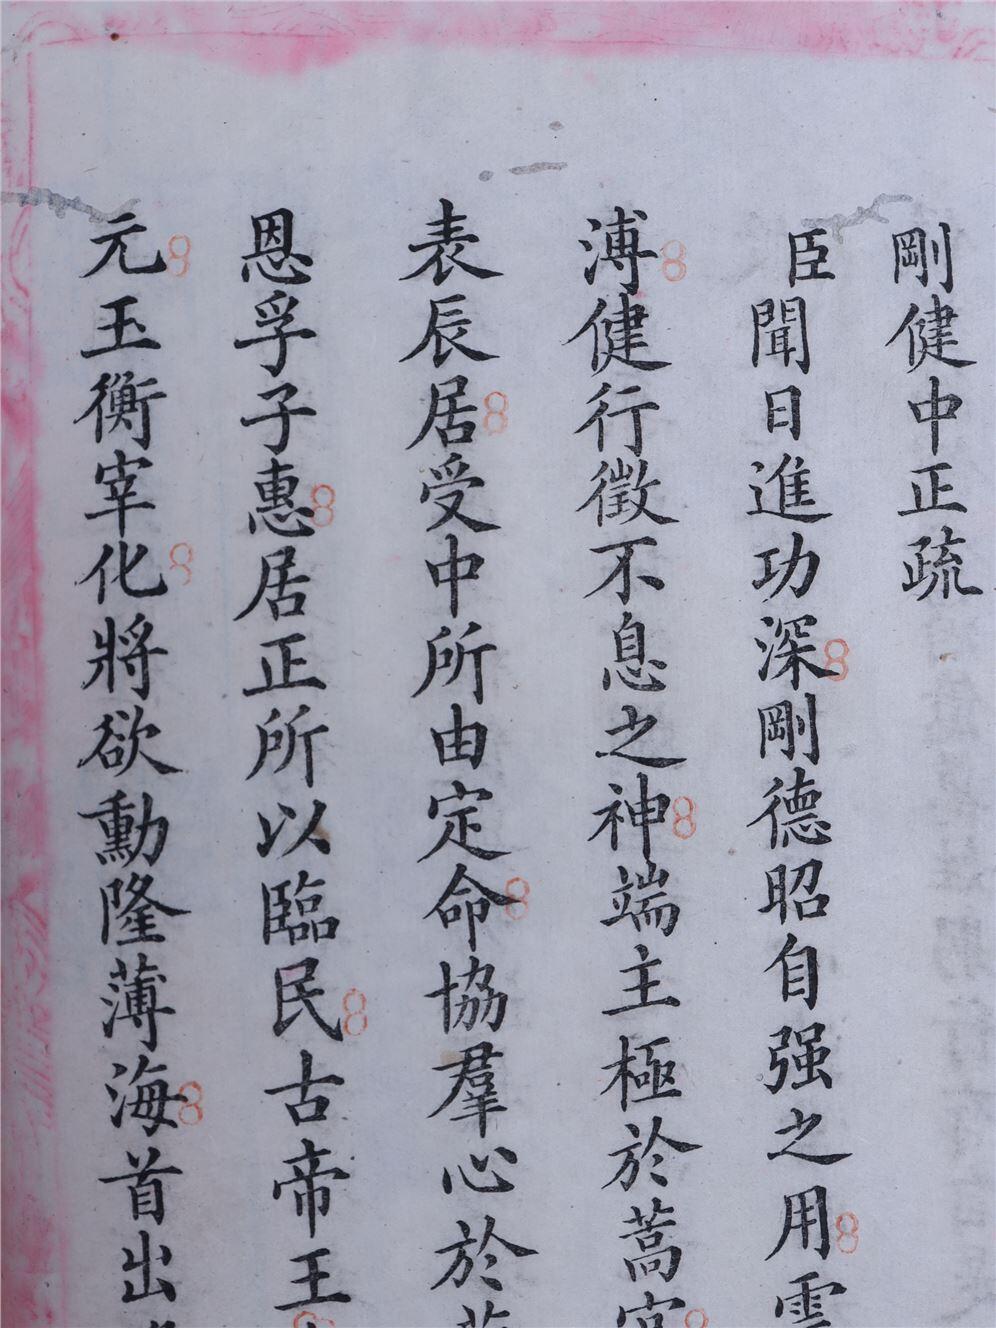 剛健中正疏
臣聞日進功深剛德昭自强之用雲
溥健行徵不息之神端主極於蒿宫
表辰居受中所由定命協羣心於
恩孚子惠居正所以臨民古帝王
元玉衡宰化將欲勳隆薄海首出